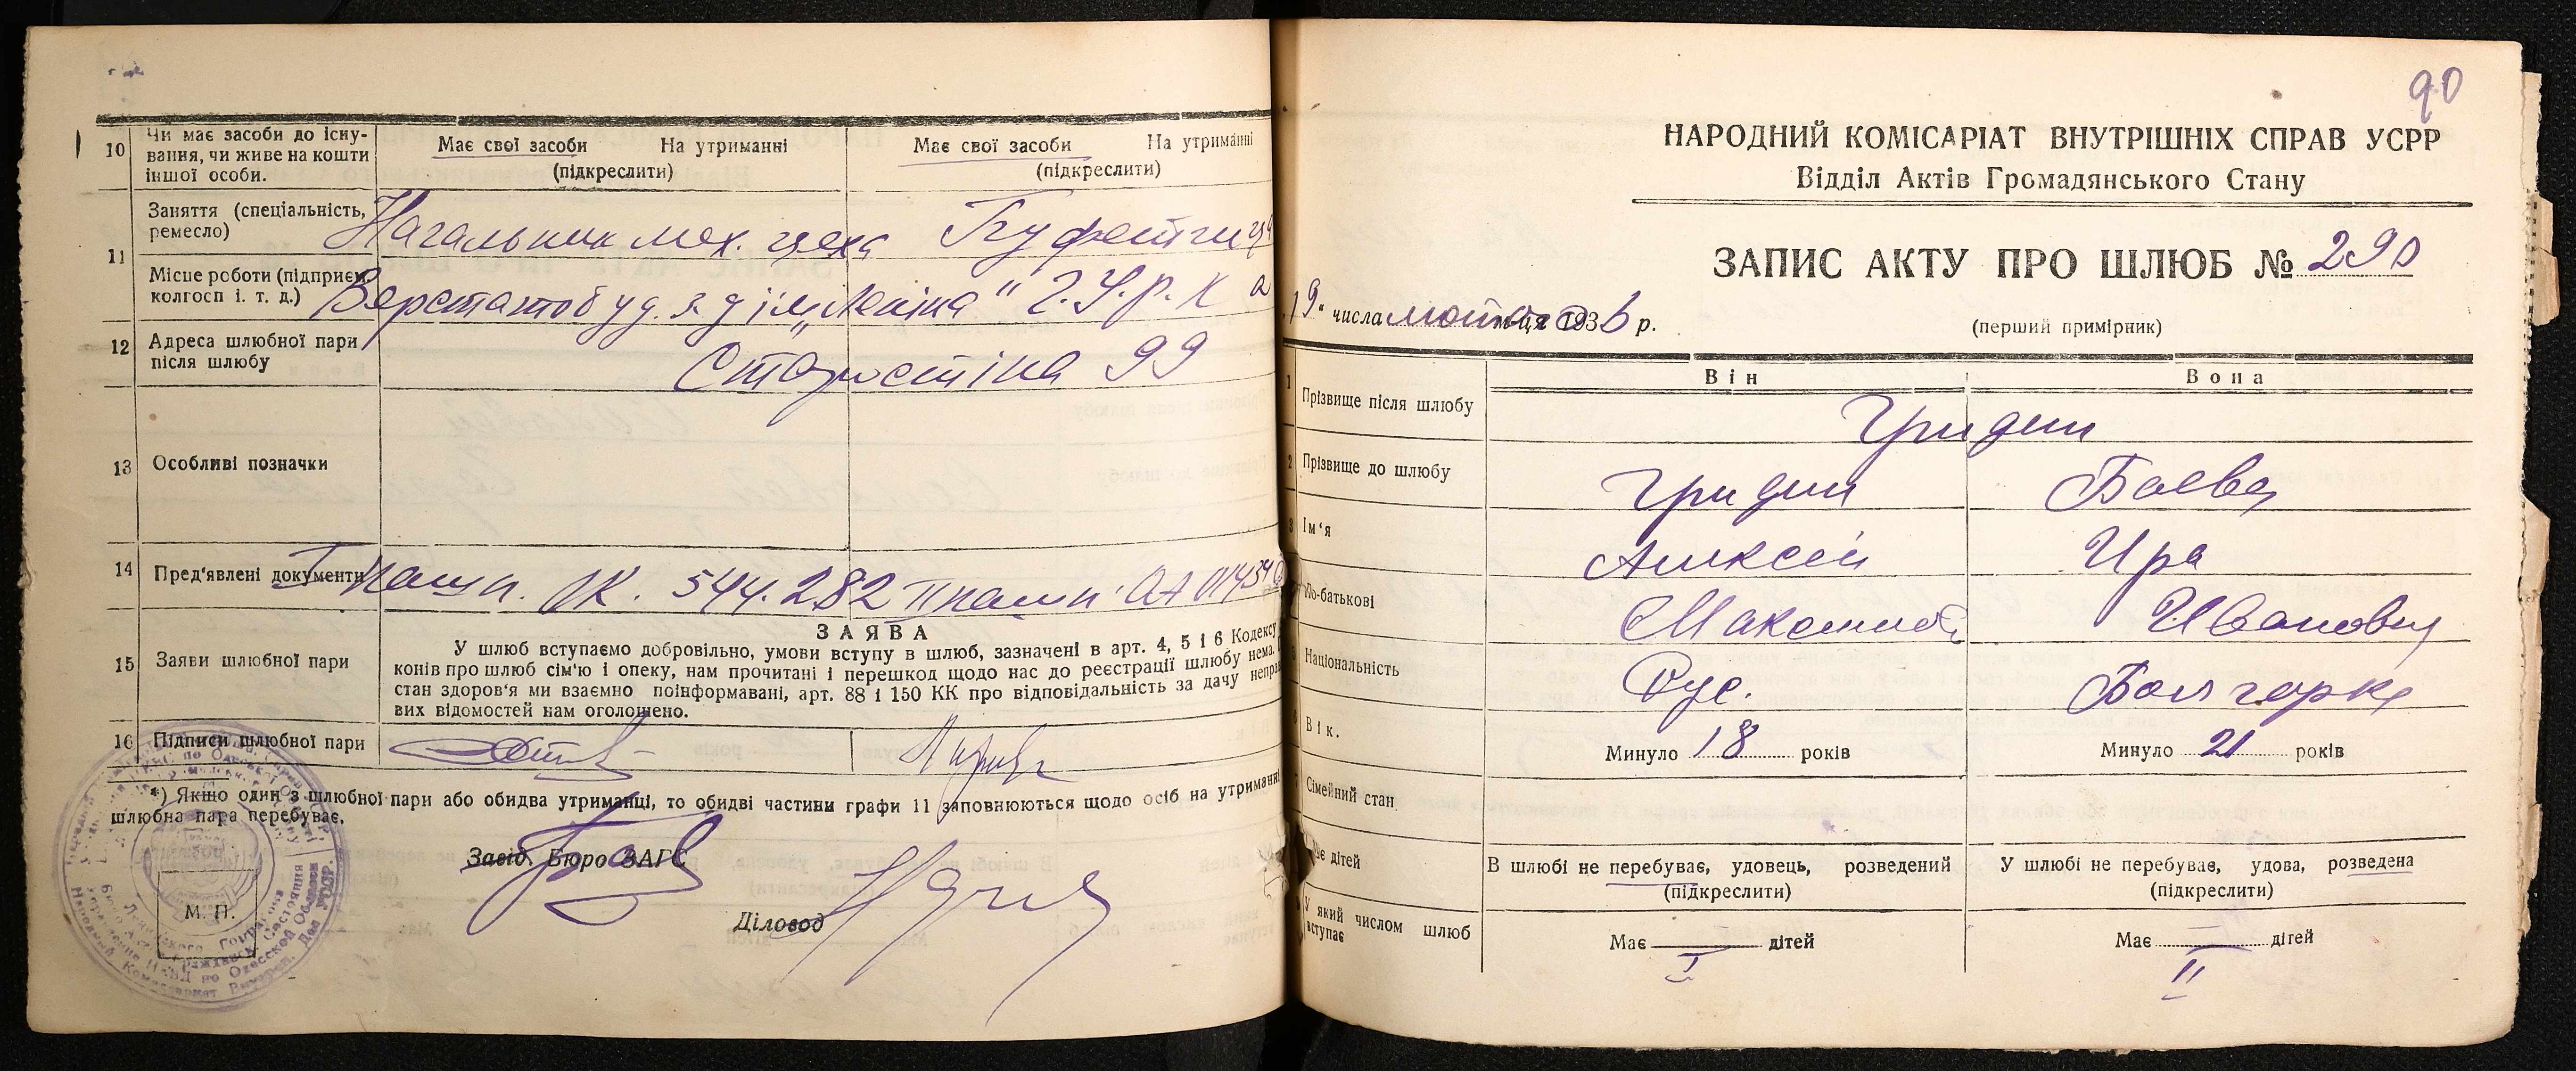 10 Чи має засоби до існу-
вання, чи живе на кошти
іншої особи.
Має свої засоби На утриманні
(підкреслити)
Має свої засоби На утриманні
(підкреслити)
11 Заняття (спеціальність,
ремесло)
Начальник мех. цеха Буфетчица
Місце роботи (підприєм.
колгосп і. т. д.)
Верстатобуд. з-д ім. „Леніна"
12 Адреса шлюбної пари
після шлюбу
Старостіна 99
13 Особливі позначки
14 Пред'явлені документи
I пашп. ЛК. 544.282 II пашп.
15 Заяви шлюбної пари
ЗАЯВА
У шлюб вступаємо добровільно, умови вступу в шлюб, зазначені в арт. 4, 5 і 6 Кодексу
конів про шлюб сім'ю і опеку, нам прочитані і перешкод щодо нас до реєстрації шлюбу нема.
стан здоров'я ми взаємно поінформавані, арт. 88 і 150 КК про відповідальність за дачу неправ
вих відомостей нам оголошено.
16 Підписи шлюбної пари
*) Якшо один з шлюбної пари або обидва утриманці, то обидві частини графи 11 заповнюються щодо осіб на утриманні
шлюбна пара перебуває.
Завід. Бюро ЗАГС
М. П.
Діловод
90
НАРОДНИЙ КОМІСАРІАТ ВНУТРІШНІХ СПРАВ УСРР
Відділ Актів Громадянського Стану
ЗАПИС АКТУ ПРО ШЛЮБ № 290
„19" числа лютого м-ця 1936 р.
(перший примірник)
Він Вона
1 Прізвище після шлюбу
Гридин
2 Прізвище до шлюбу
Гридин Баева
3 Ім'я
Алексей Ира
По-батькові
Максимов Ивановна
Національність
Рус. Болгарка
Вік.
Минуло 18 років
Минуло 21 років
Сімейний стан
В шлюбі не перебуває, удовець, розведений
(підкреслити)
У шлюбі не перебуває, удова, розведена
(підкреслити)
Має дітей
У який числом шлюб
вступає
Має — дітей
Має — дітей
I II